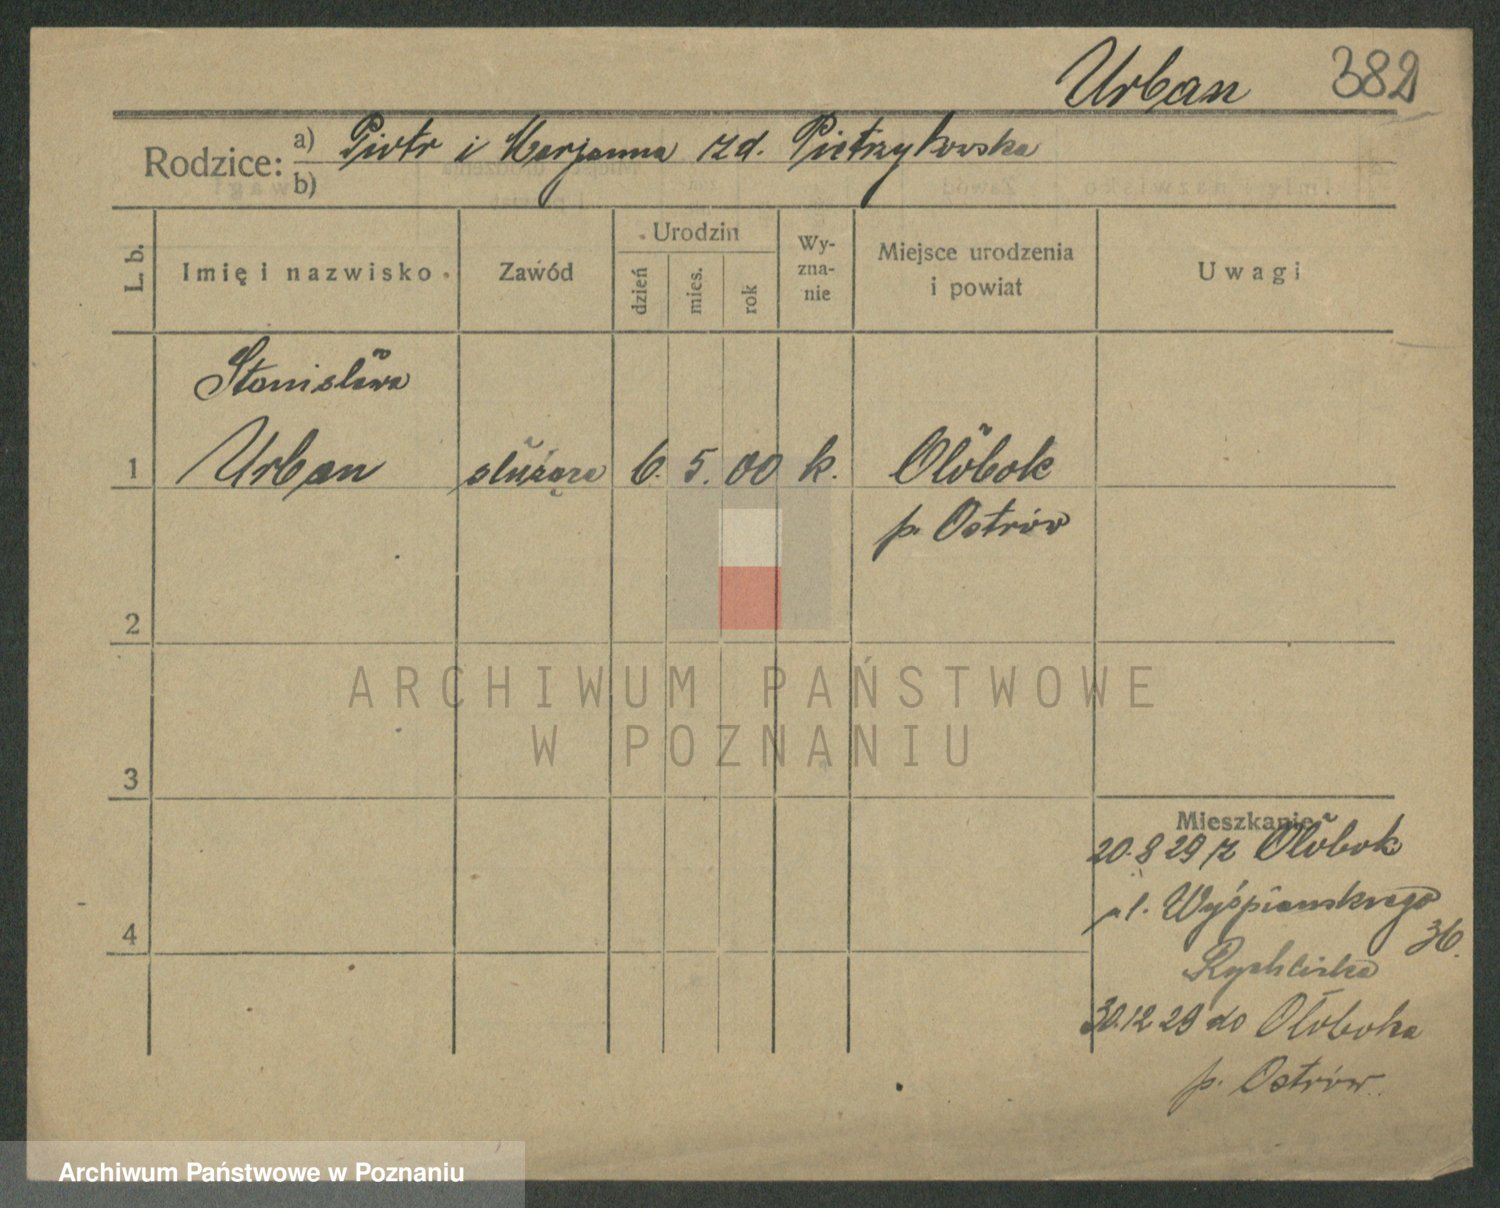 Urban 382
Rodzice: a) Piotr i Marjanna zd. Pietrzykowska
b)
L. b. Imię i nazwisko Zawód Urodzin dzień mies. rok Wy-zna-nie Miejsce urodzenia i powiat Uwagi
Stanisława
1 Urban służąca 6. 5. 00 k. Ołobok
p. Ostrów
2
ARCHIWUM PAŃSTWOWE
W POZNANIU
3
Mieszkanie
20.8 29 z Ołobok
ul. Wyśpianskiego
36.
30.12 29 do Ołoboka
p. Ostrów.
4
Archiwum Państwowe w Poznaniu